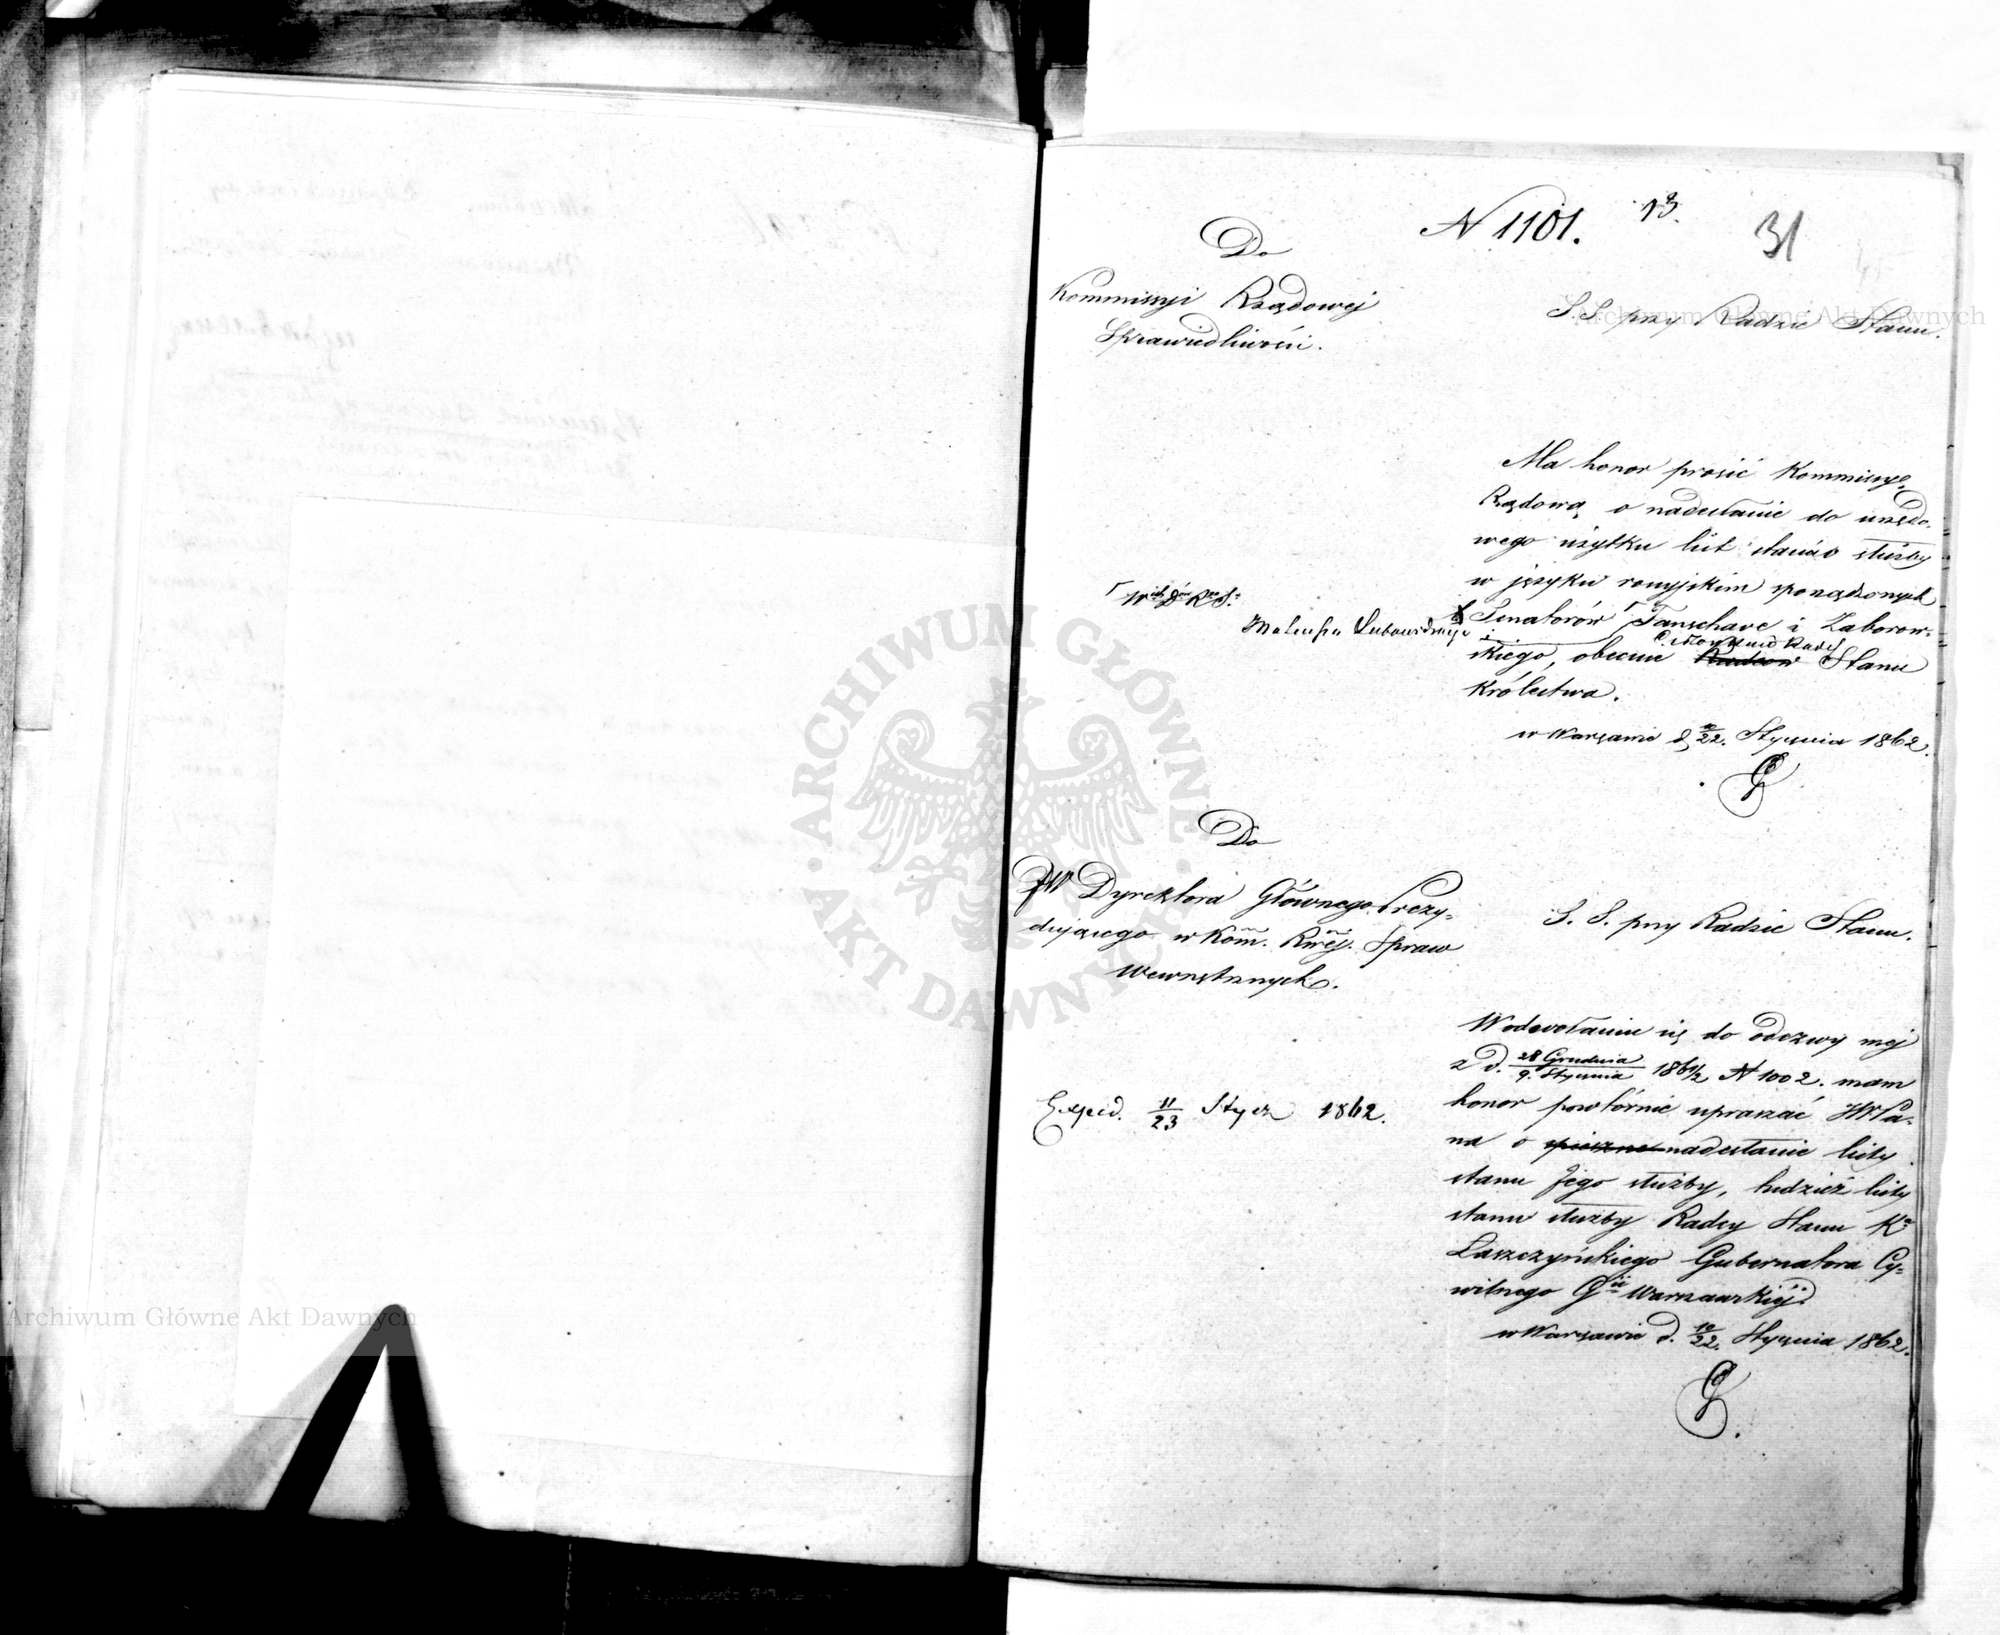 N 1101.
13.
31
Do
Kommissyi Rządowej
Sprawiedliwości.
S. S. przy Radzie Stanu.
Ma honor prosić Kommissyę
Rządową o nadesłanie do urzędo-
wego użytku list stanów służby
w języku rossyjskim sporządzonych
Senatorów Fanschave i Zaborow-
skiego, obecnie Członków Rady Stanu
Królestwa.
w Warszawie d. 10/22. Stycznia 1862.
Do
JW Dyrektora Głównego Prezy-
dującego w Kom. Rwej. Spraw
Wewnętrznych.
S. S. przy Radzie Stanu.
W odwołaniu się do odezwy mej
z d. 28 Grudnia / 9. Stycznia 1861/2 N 1002. mam
honor powtórnie upraszać JWPa-
na o spieszne nadesłanie listy
stanu Jego służby, tudzież listy
stanu służby Radcy Stanu
Łaszczyńskiego Gubernatora Cy-
wilnego Gii Warszawskiej.
w Warszawie d. 10/22. Stycznia 1862.
Exped. 11/23 Stycz 1862.
Archiwum Główne Akt Dawnych
Archiwum Główne Akt Dawnych
ARCHIWUM GŁÓWNE · AKT DAWNYCH ·